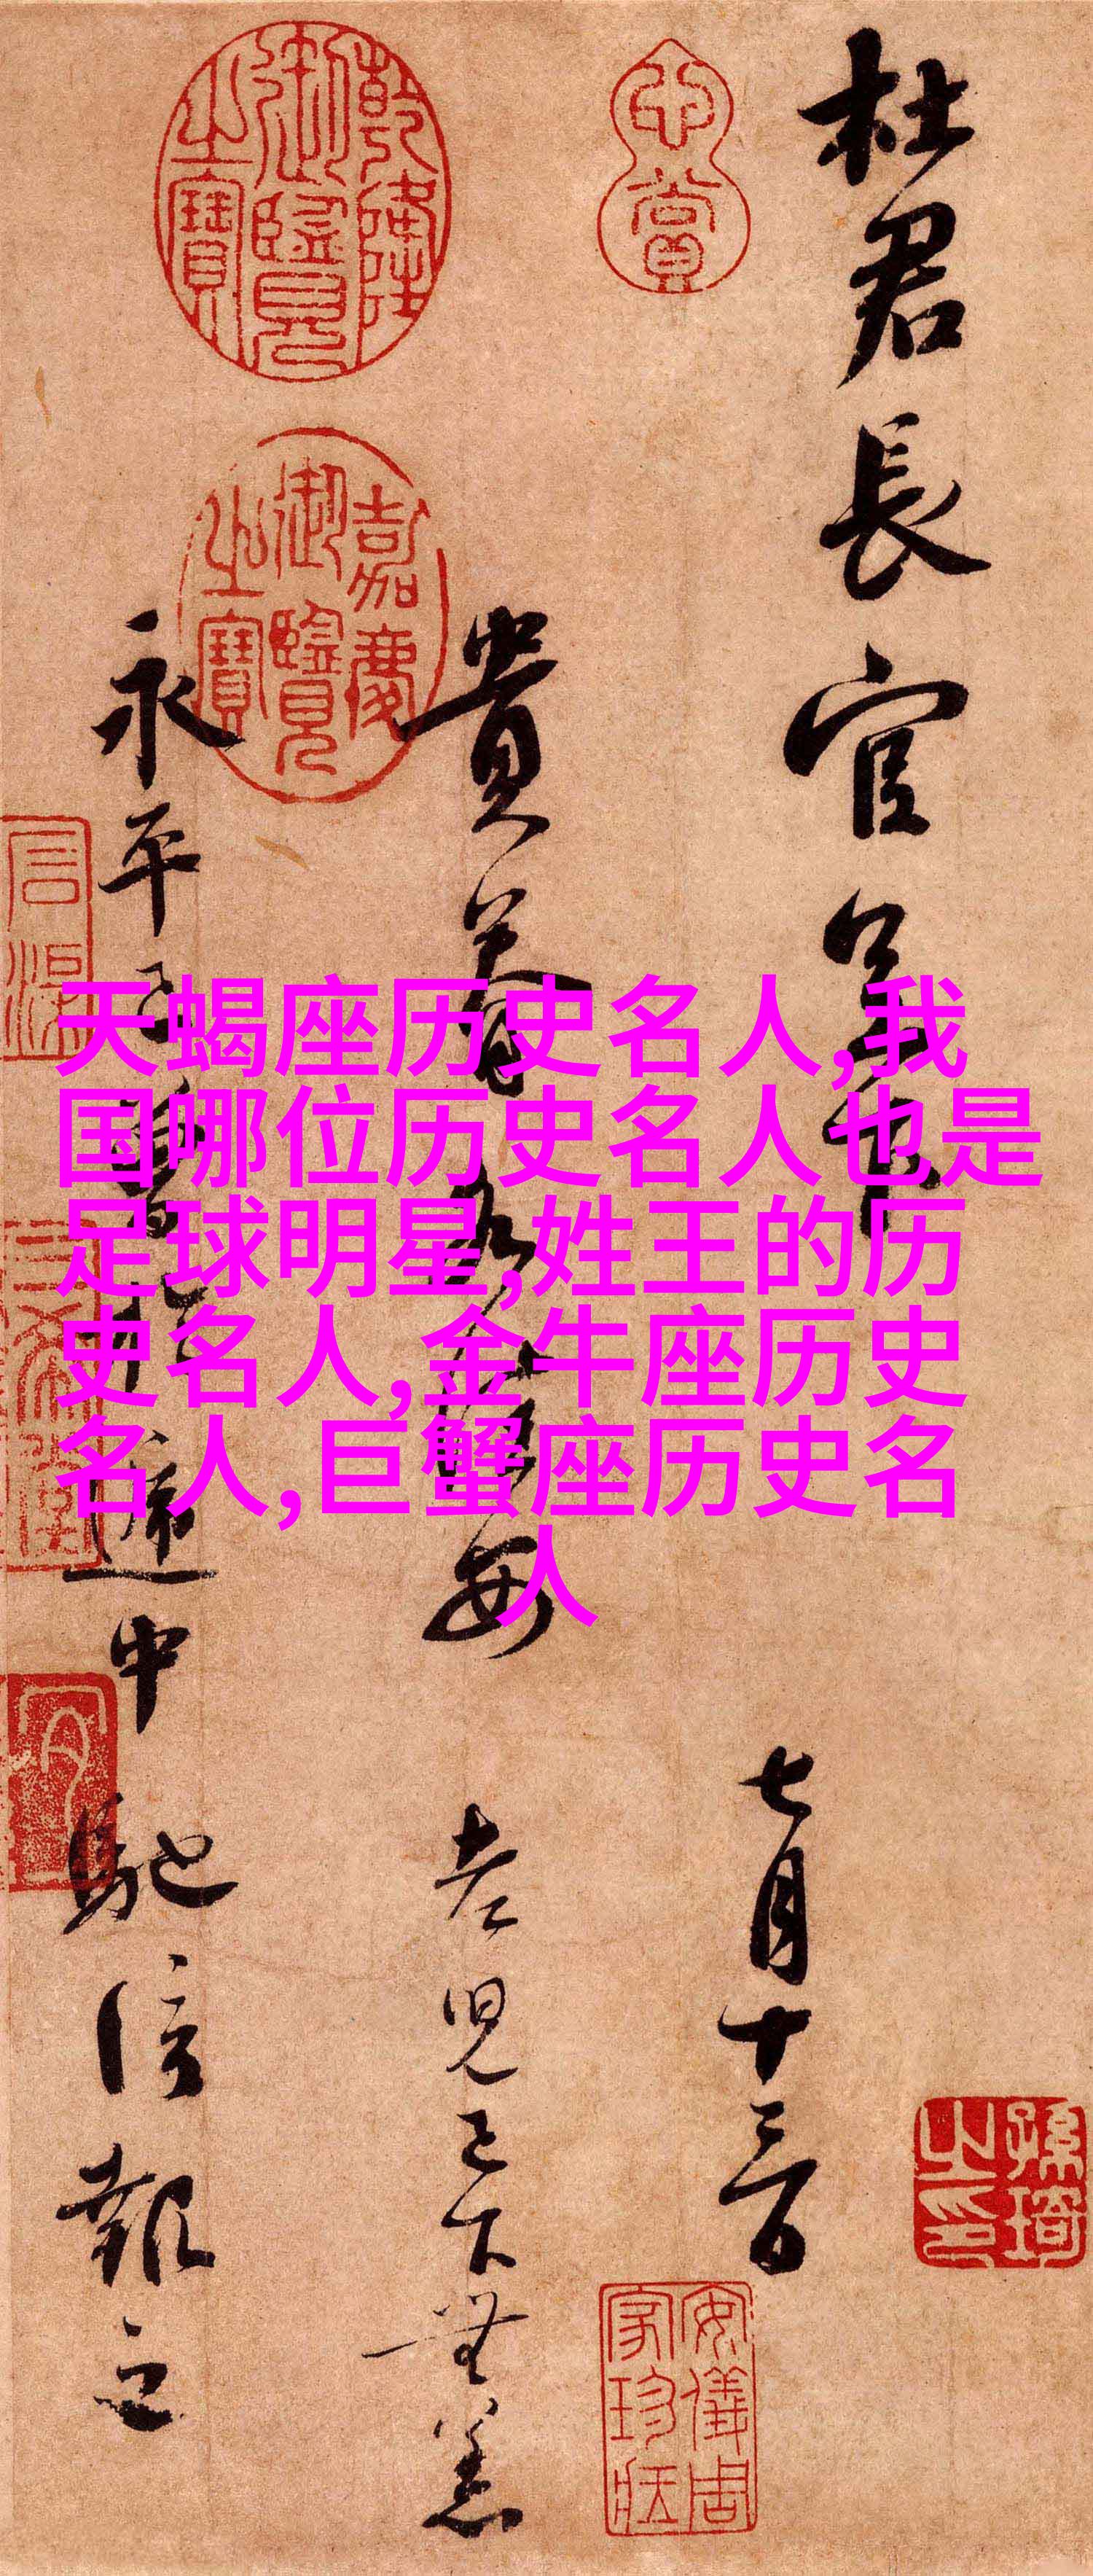 天蝎座历史名人,我
国哪位历史名人也是
足球明星,姓王的历
史名人,金牛座历史
名人,巨蟹座历史名
人
杜君長官
七月十三日
貴眷
老児已下無恙
永平
遞中馳信報之
乾隆御覽之寶
嘉慶御覽之寶
心賞
孫琦之印
安儀周家珍藏